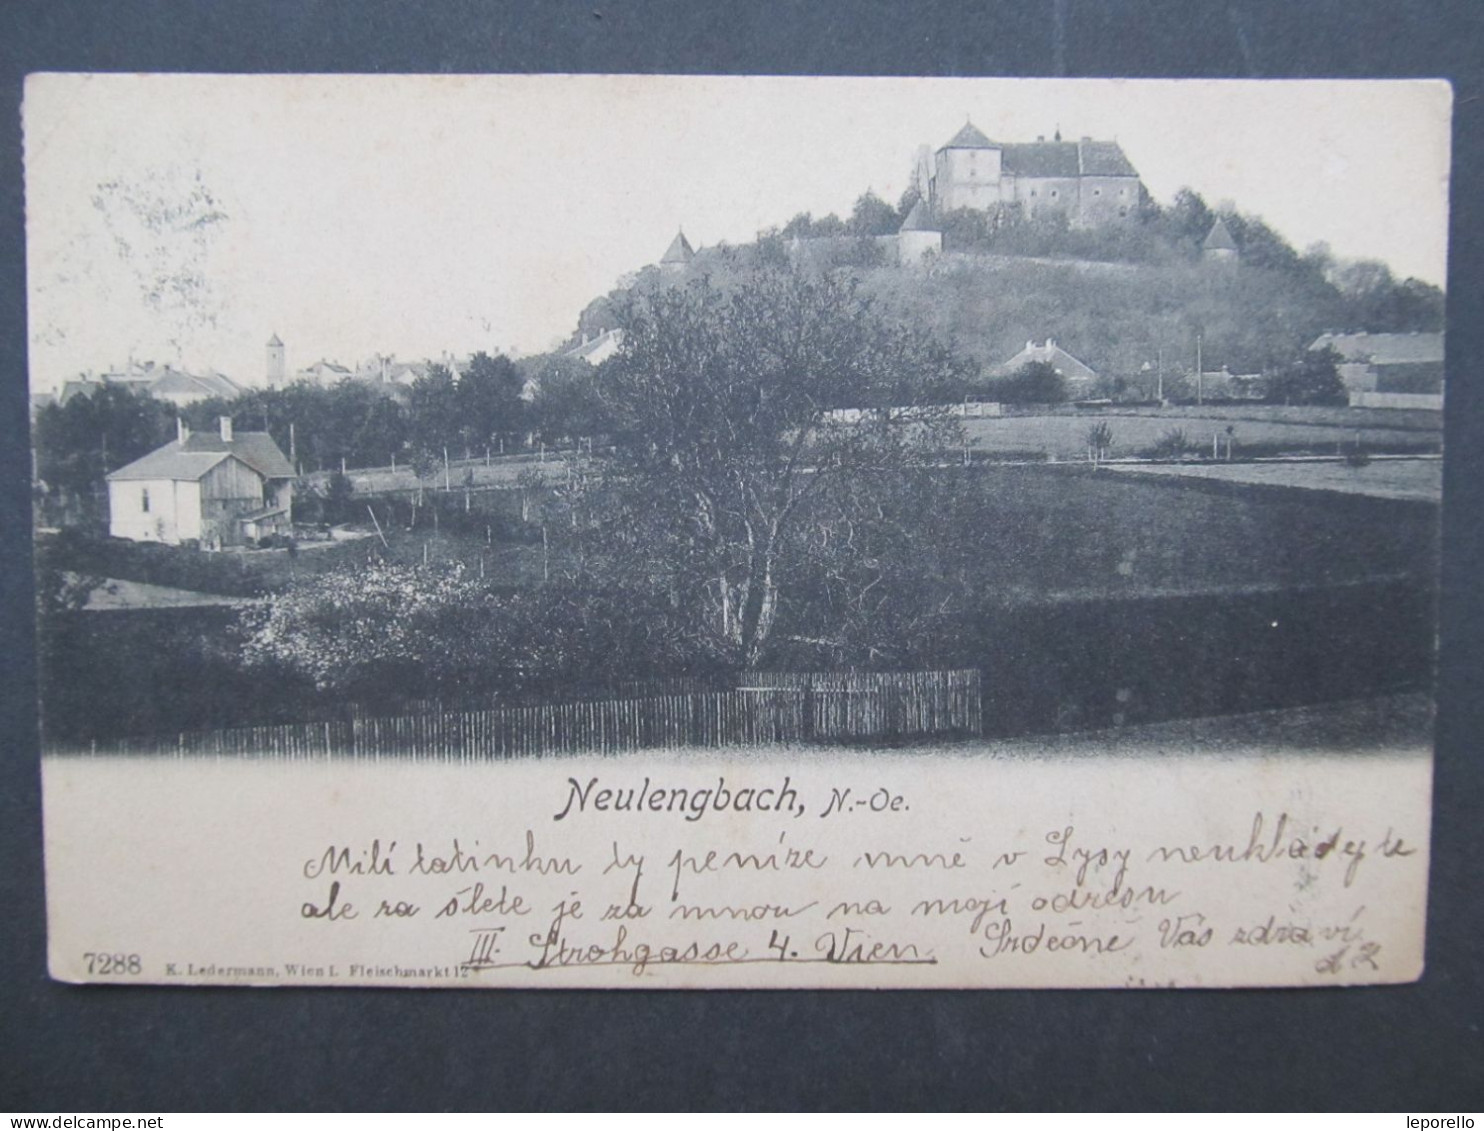 Neulengbach, N.-Oe.
Milí tatínku ty peníze mně v Lysy neukládejte
ale za šlete je za mnou na mojí adresu
III. Strohgasse 4. Vien. Srdečně Vás zdraví
7288 K. Ledermann, Wien I. Fleischmarkt 12
leporello